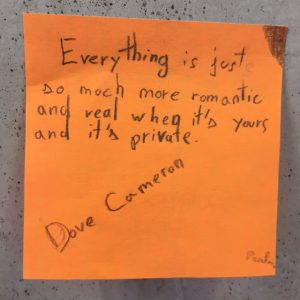 Everything is just
so much more romantic
and real when it's yours
and it's private.
Dove Cameron